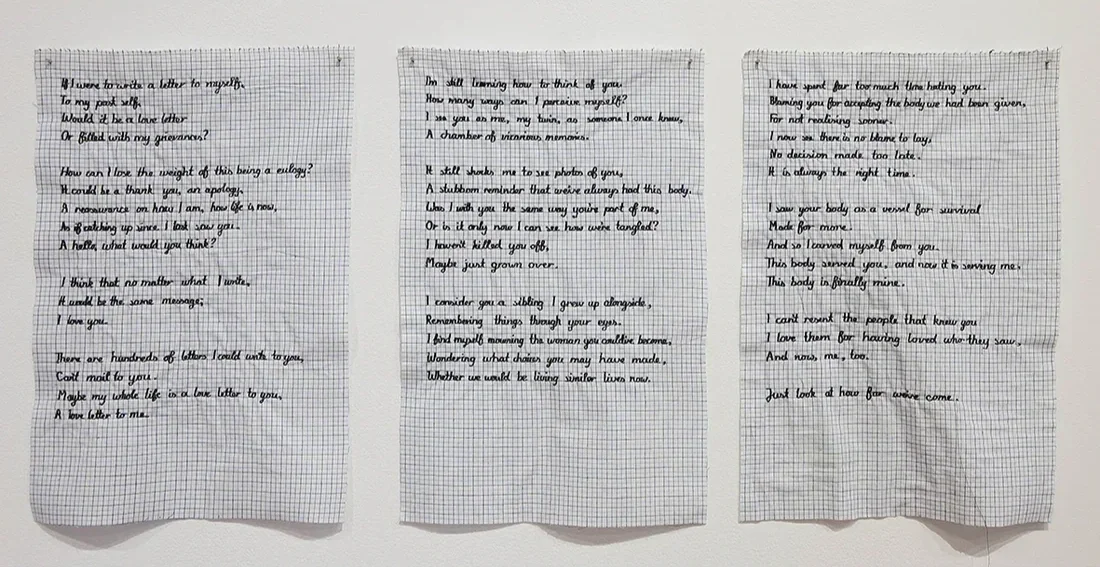 If I were to write a letter to myself,
To my past self,
Would it be a love letter
Or filled with my grievances?
How can I lose the weight of this being a eulogy?
It could be a thank you, an apology,
A reassurance on how I am, how life is now,
As if catching up since I last saw you.
A hello, what would you think?
I think that no matter what I write,
It would be the same message;
I love you.
There are hundreds of letters I could write to you,
Can't mail to you.
Maybe my whole life is a love letter to you,
A love letter to me.
I'm still learning how to think of you.
How many ways can I perceive myself?
I see you as me, my twin, as someone I once knew,
A chamber of vicarious memories.
It still shocks me to see photos of you,
A stubborn reminder that we've always had this body.
Was I with you the same way you're part of me,
Or is it only now I can see how we're tangled?
I haven't killed you off,
Maybe just grown over.
I consider you a sibling I grew up alongside,
Remembering things through your eyes.
I find myself mourning the woman you could've become,
Wondering what choices you may have made,
Whether we would be living similar lives now.
I have spent far too much time hating you.
Blaming you for accepting the body we had been given,
For not realising sooner.
I now see there is no blame to lay,
No decision made too late.
It is always the right time.
I saw your body as a vessel for survival
Made for more.
And so I carved myself from you.
This body served you, and now it is serving me.
This body is finally mine.
I can't resent the people that knew you
I love them for having loved who they saw,
And now, me, too.
Just look at how far we've come.